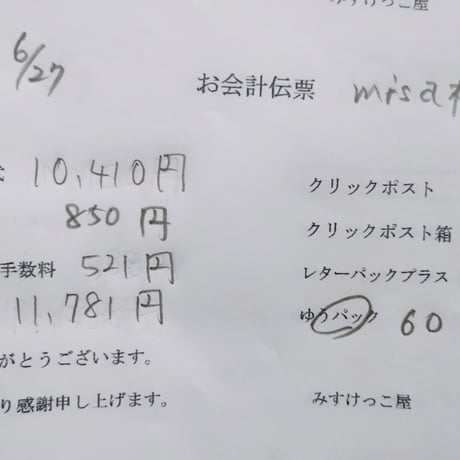 みすけっこ屋
6/27
お会計伝票 misa
10,410円
850円
手数料 521円
11,781円
がとうございます。
り感謝申し上げます。
クリックポスト
クリックポスト箱
レターパックプラス
ゆうパック 60
みすけっこ屋